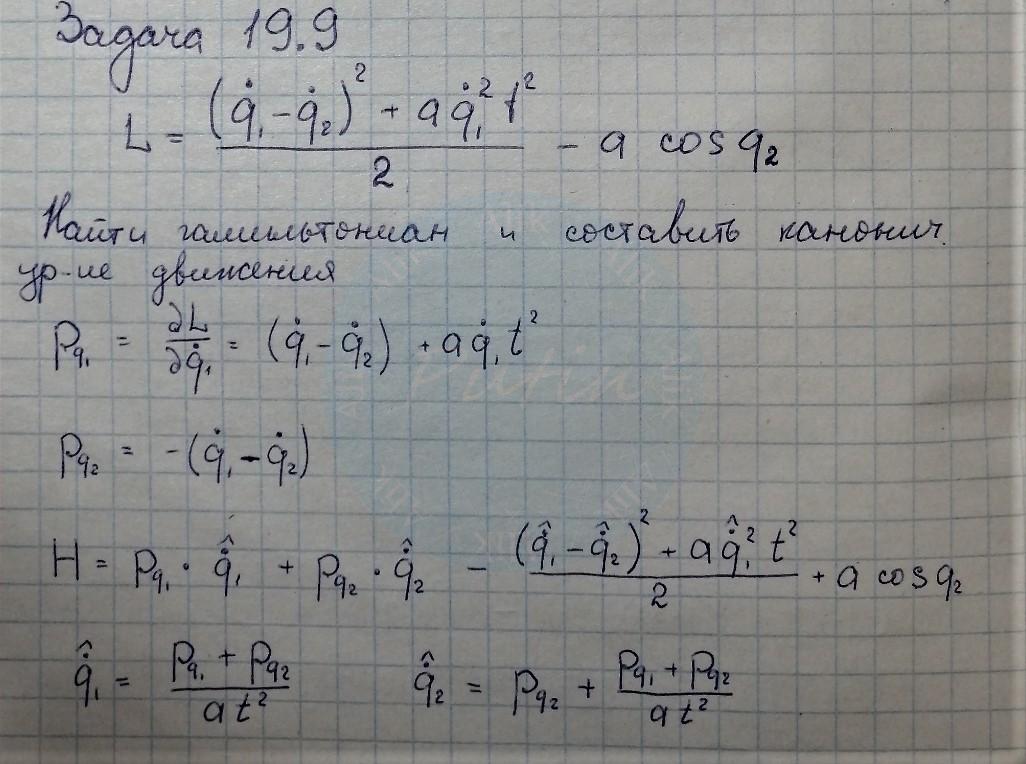 Задача 19.9
L = ((q̇₁ - q̇₂)² + a q̇₁² t²)/2 - a cos q₂
Найти гамильтониан и составить канонич.
ур-ие движения
p_q₁ = ∂L/∂q̇₁ = (q̇₁ - q̇₂) + a q̇₁ t²
p_q₂ = -(q̇₁ - q̇₂)
H = p_q₁ · q̇̂₁ + p_q₂ · q̇̂₂ - ((q̇̂₁ - q̇̂₂)² + a q̇̂₁² t²)/2 + a cos q₂
q̇̂₁ = (p_q₁ + p_q₂)/(a t²) q̇̂₂ = p_q₂ + (p_q₁ + p_q₂)/(a t²)